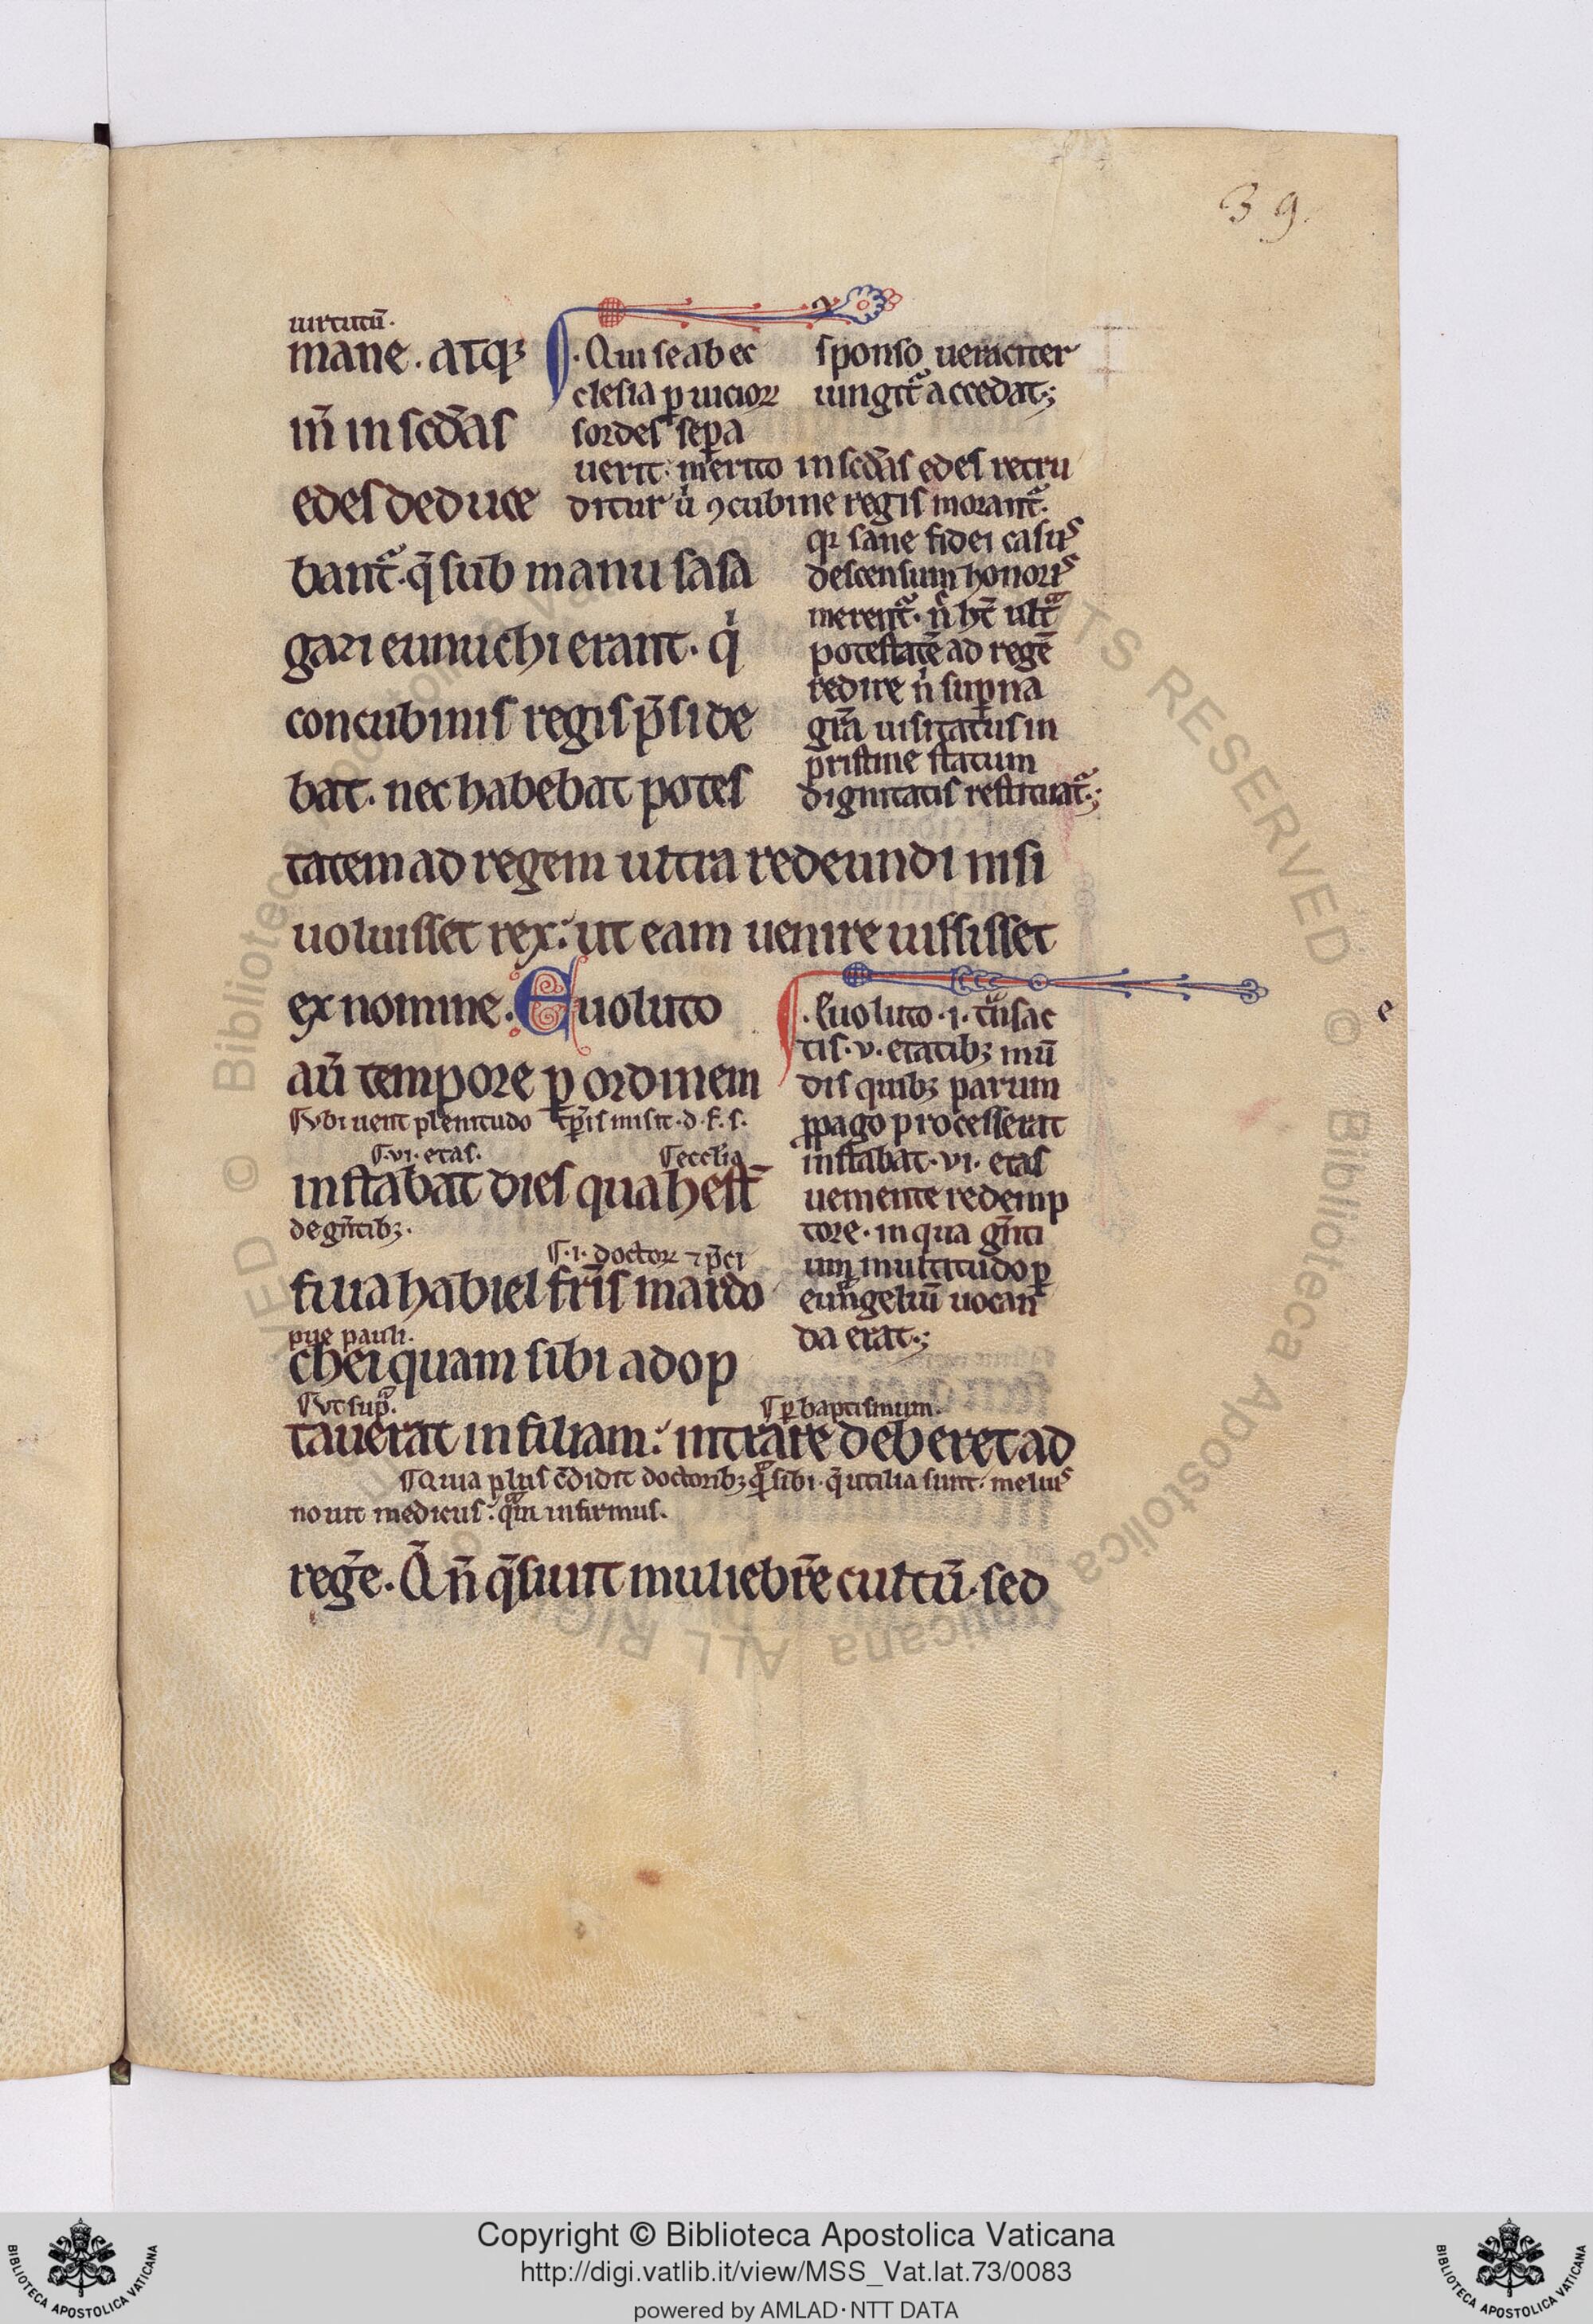 39.
uirtutū.
mane. atqꝫ
iń in scd̄as
edes deduce
bant᷑. q̄ sub manu sasa
gari eunuchi erant. qͥ
concubinis regis p̄side
bat. nec habebat potes
tatem ad regem ultra redeundi nisi
uoluisset rex: ut eam uenire iussisset
ex nomine. Euoluto
. Qui se ab ec
clesia ꝑ uicioꝝ
sordes sepa
uerit. merito in scd̄as edes retru
ditur ú ꝯcubine regis morant᷑.
sponso ueraciter
iungit᷑ accedat;
qꝛ sane fidei casus
descensum honoris
merent᷑. ń hn̄t ultᵃ
potestatē ad regē
redire ń suꝑna
grā uisitatus in
pristine statum
dignitatis restituat᷑.;
aū tempore ꝑ ordinem
¶Vbi uenit plenitudo tp̄ris misit .d. f. s.
¶.vi. etas.
¶ecclīa
instabat dies qua hest̄
de gn̄tibꝫ.
¶.i. doctoꝝ ⁊ p̄ci
fiua habiel fr̄is mardo
pue pauli.
chei quam sibi adop
¶Vt sup̄.
¶ꝑ baptismum.
tauerat in filiam: intrare deberet ad
¶Quia plus c̄didit doctoribꝫ qᷓ sibi. q̄ utilia sunt. melius
nouit medicus: qᷓm infirmus.
regē. Q̄ ń q̄siuit muliebrē cultū. sed
. Euoluto .i. tᵃnsac
tis .v. etatibꝫ mū
dis quibꝫ parum
ꝓpago processerat
instabat .vi. etas
ueniente redemp
tore. in qua gn̄ti
um multitudo ꝑ
euᵃngeliū uocan
da erat.;
e
Copyright © Biblioteca Apostolica Vaticana
http://digi.vatlib.it/view/MSS_Vat.lat.73/0083
powered by AMLAD·NTT DATA
BIBLIOTECA APOSTOLICA VATICANA
BIBLIOTECA APOSTOLICA VATICANA